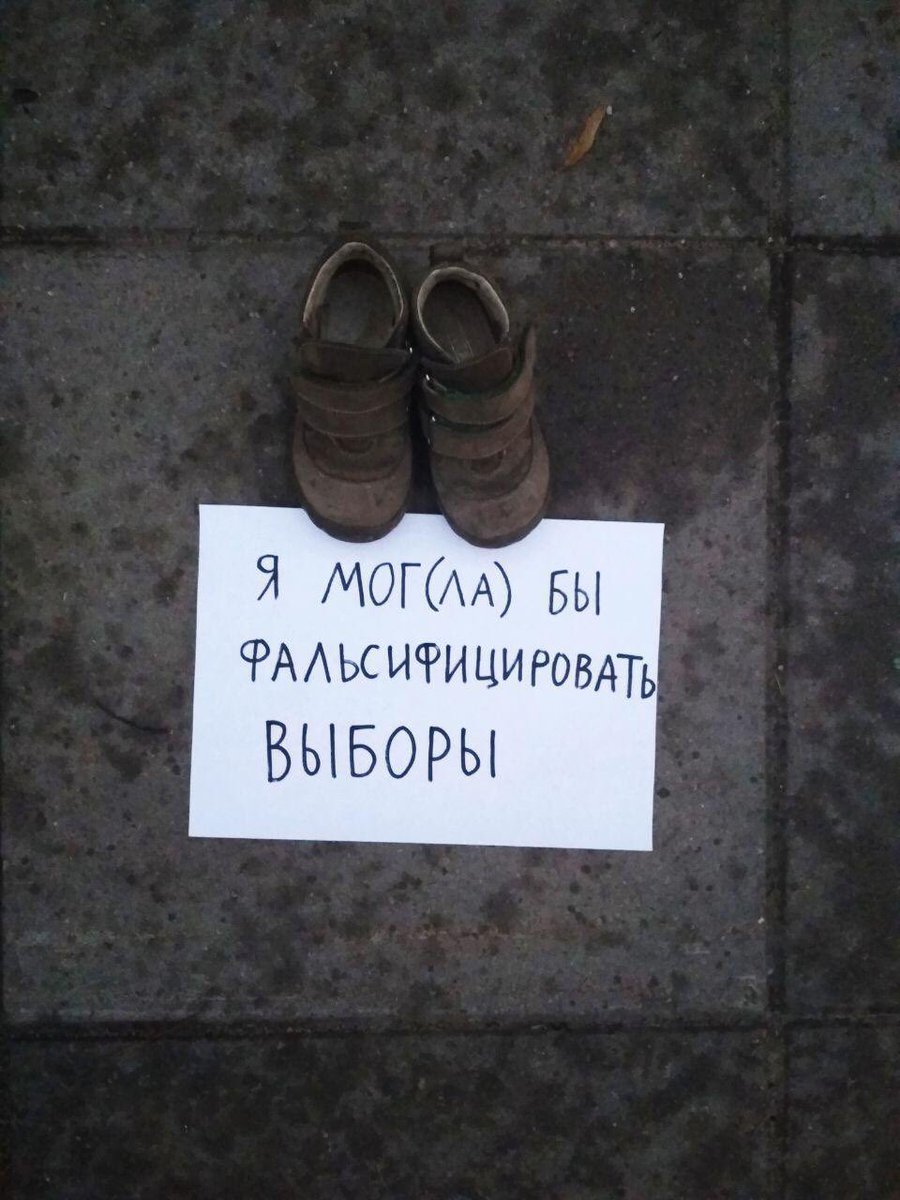 Я МОГ(ЛА) БЫ
ФАЛЬСИФИЦИРОВАТЬ
ВЫБОРЫ